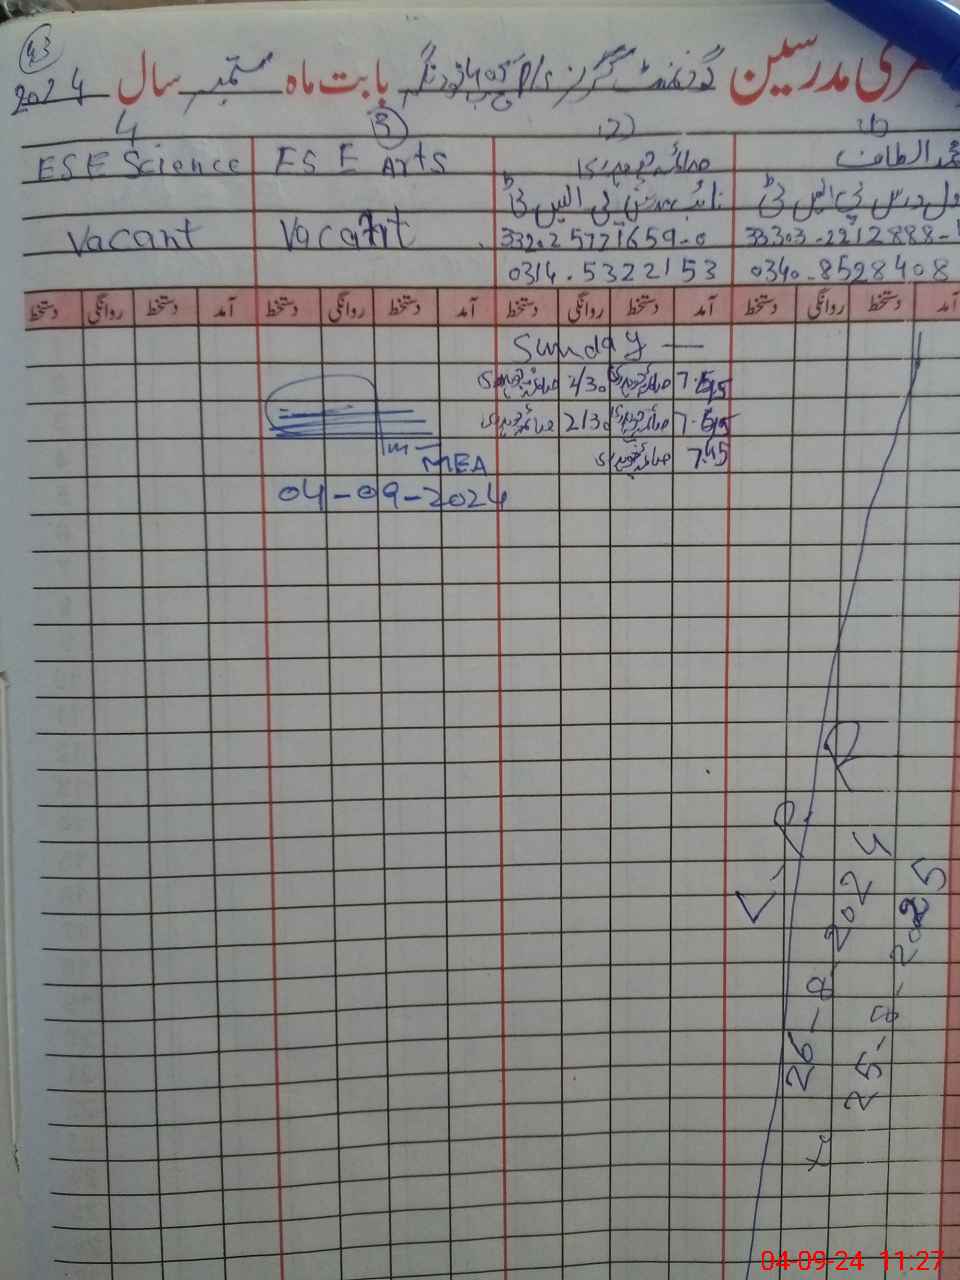 43
حاضری مدرسین گورنمنٹ گرلز P/s بابت ماہ ستمبر سال 2024
(1) (2) (3) 4
محمد الطاف
صائمہ چوہدری
ESE Arts
ESE Science
نائب مدرس پی ایس ٹی
33303-2212888-
33202 5771659-0
Vacant
Vacant
0340-8528408
0314-5322153
آمد دستخط روانگی دستخط آمد دستخط روانگی دستخط آمد دستخط روانگی دستخط آمد دستخط روانگی دستخط
Sunday —
7.45 صائمہ چوہدری 2/30 صائمہ چوہدری
7.45 صائمہ چوہدری 2/30 صائمہ چوہدری
7.45 صائمہ چوہدری
MEA
04-09-2024
L.P.R
26-8-2024
To 25-8-2025
04-09-24 11:27